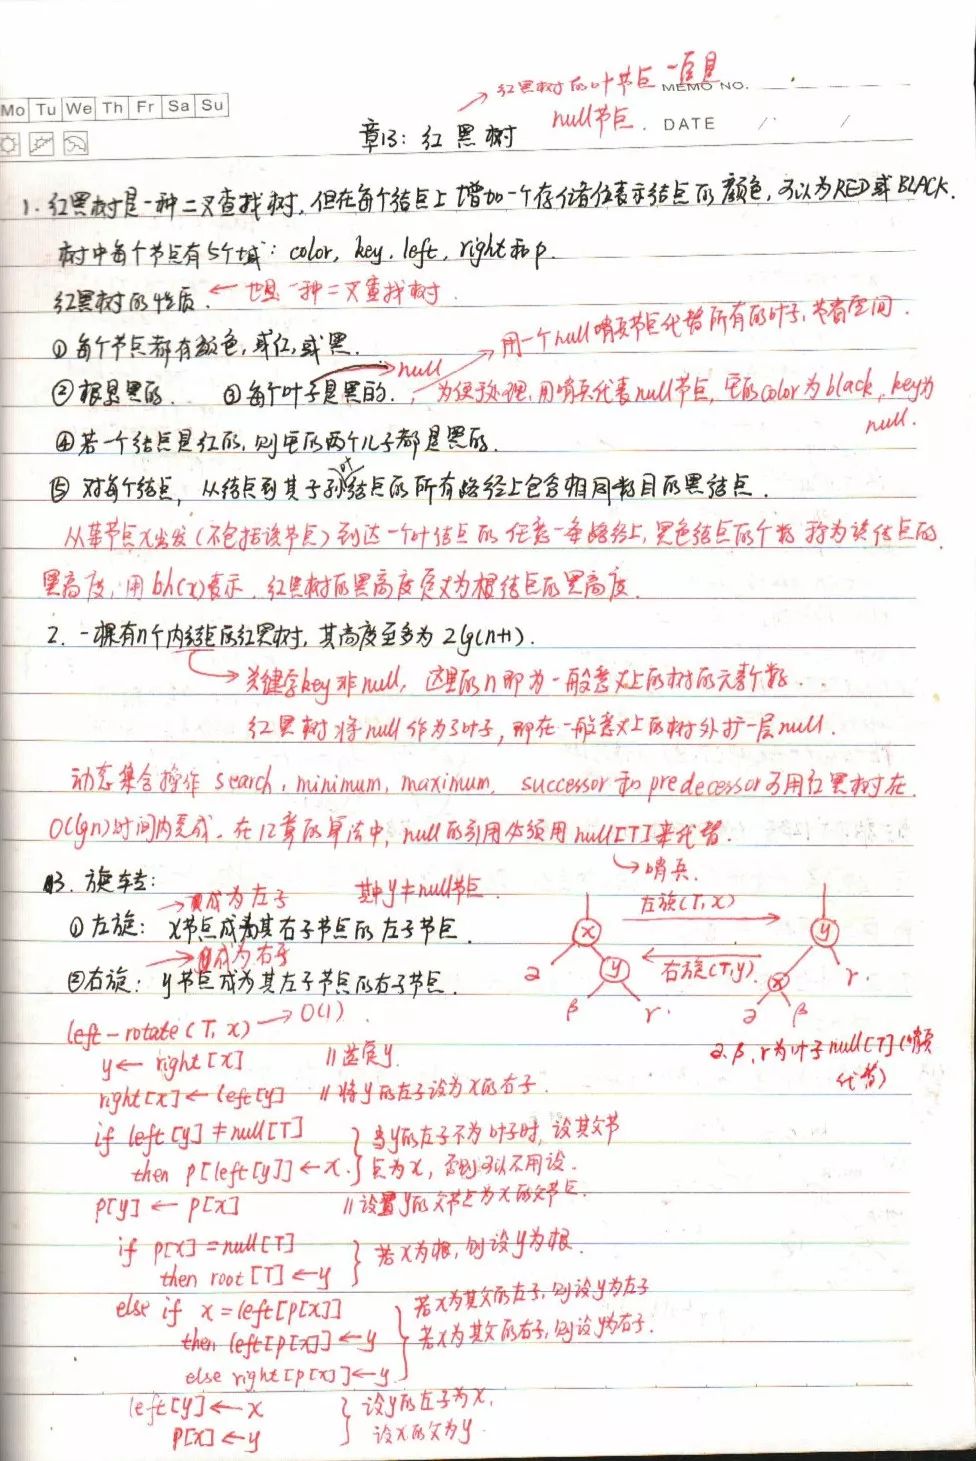 Mo Tu We Th Fr Sa Su
红黑树的叶节点一定是
MEMO NO.
null节点.
DATE / /
章13: 红黑树
1. 红黑树是一种二叉查找树, 但在每个结点上增加一个存储位表示结点的颜色, 可以为RED或BLACK.
树中每个节点有5个域: color, key, left, right和p.
红黑树的性质. ← 也是一种二叉查找树.
用一个null哨兵节点代替所有的叶子, 节省空间.
① 每个节点都有颜色, 或红, 或黑.
null
② 根是黑的. ③ 每个叶子是黑的. 为便于处理, 用哨兵代表null节点, 它的color为black, key为
null.
④ 若一个结点是红的, 则它的两个儿子都是黑的.
⑤ 对每个结点, 从结点到其子孙结点的所有路径上包含相同数目的黑结点.
从某节点x出发(不包括该节点)到达一个叶结点的任意一条路径上, 黑色结点的个数称为该结点的
黑高度, 用bh(x)表示. 红黑树的黑高度定义为根结点的黑高度.
2. 一棵有n个内结点的红黑树, 其高度至多为2lg(n+1).
→ 关键字key非null, 这里的n即为一般意义上的树的元素个数.
红黑树将null作为了叶子, 即在一般意义上的树外扩一层null.
动态集合操作search, minimum, maximum, successor和predecessor可用红黑树在
O(lgn)时间内完成. 在12章的算法中, null的引用必须用null[T]来代替.
→ 哨兵.
3. 旋转:
→ 成为左子 其中y≠null节点.
① 左旋: x节点成为其右子节点的左子节点.
→ 成为右子
② 右旋: y节点成为其左子节点的右子节点.
左旋(T, x)
右旋(T, y)
x y α β r
y x r α β
α, β, r为叶子null[T](哨兵
代替)
left-rotate(T, x) → O(1)
y ← right[x] // 选定y.
right[x] ← left[y] // 将y的左子设为x的右子.
if left[y] ≠ null[T] } 当y的左子不为叶子时, 设其父节
then p[left[y]] ← x. 点为x, 否则可以不用设.
p[y] ← p[x] // 设置y的父节点为x的父节点.
if p[x] = null[T] } 若x为根, 则设y为根.
then root[T] ← y
else if x = left[p[x]] } 若x为其父的左子, 则设y为左子
then left[p[x]] ← y 若x为其父的右子, 则设y为右子.
else right[p[x]] ← y
left[y] ← x } 设y的左子为x,
p[x] ← y 设x的父为y.